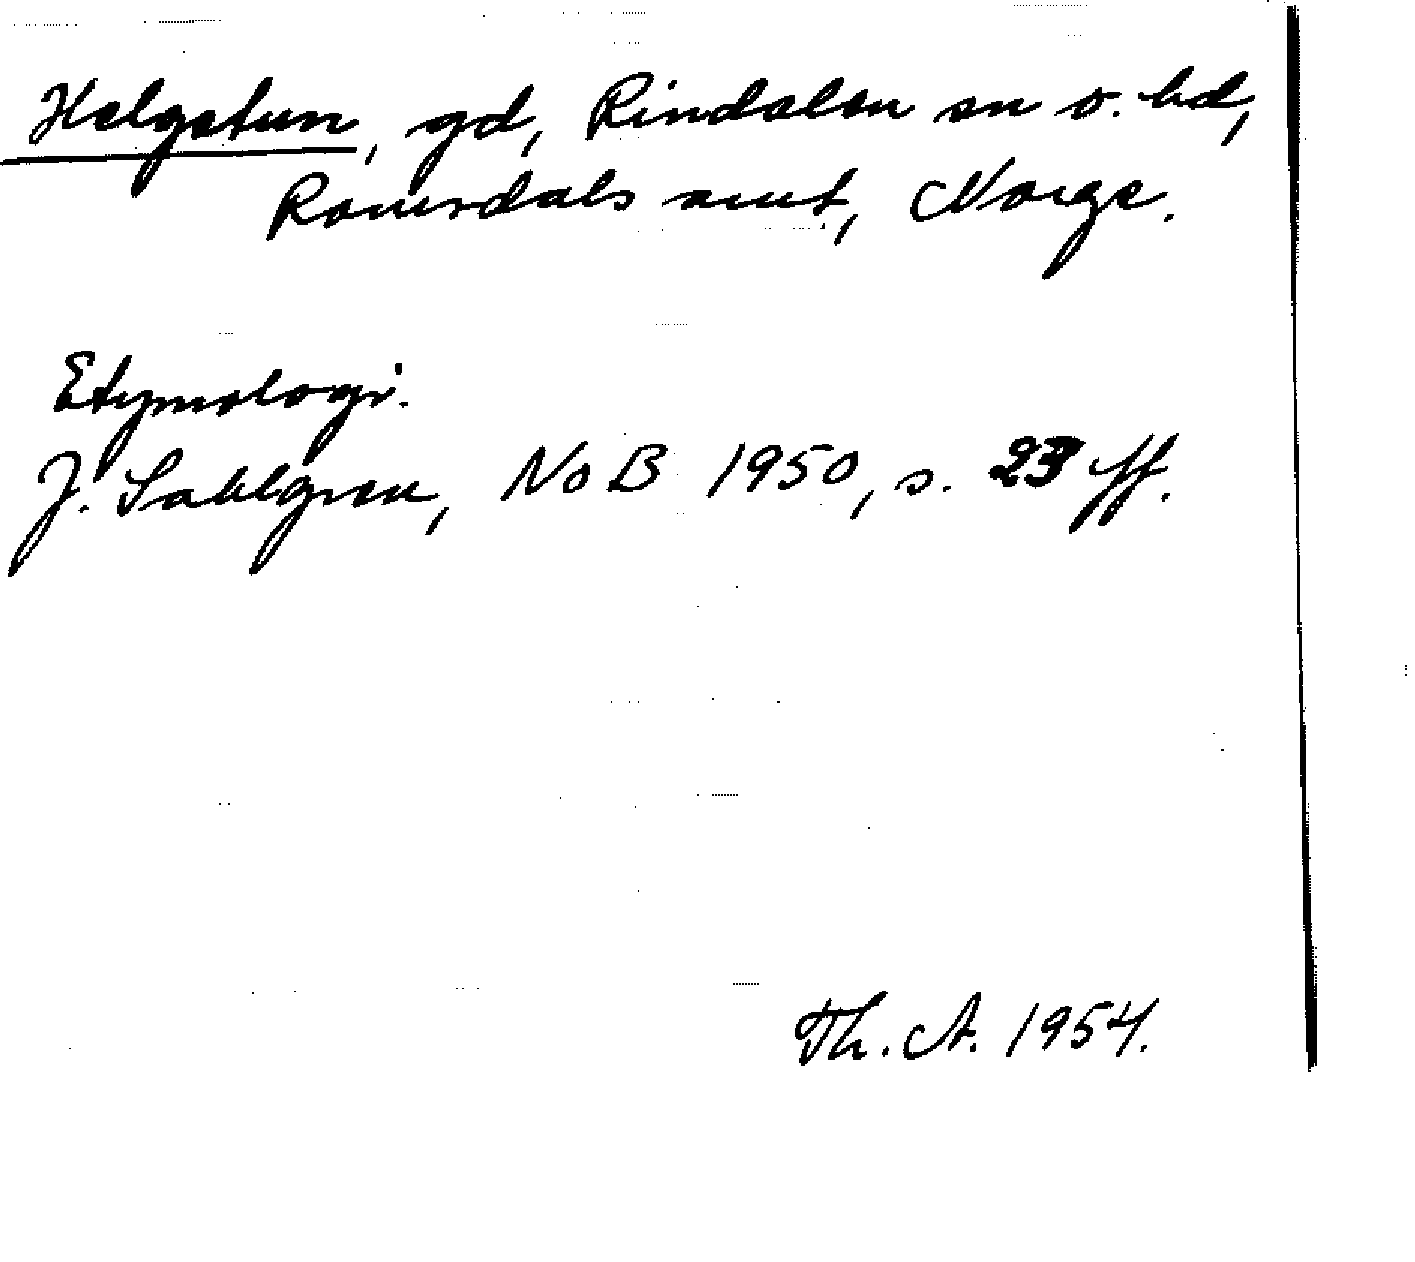 Helgetun, gd, Rindalen sn o. hd,
Romsdals amt, Norge.
Etymologi.
J. Sahlgren, NoB 1950, s. 23 ff.
Th. A. 1954.